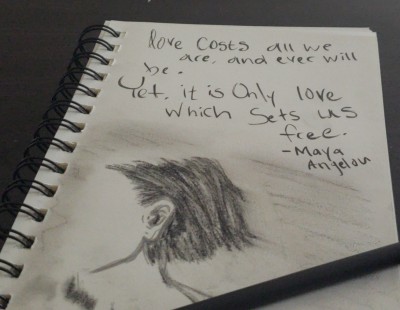 love costs all we
are, and ever will
be.
Yet, it is Only love
which sets us
free.
-Maya
Angelou